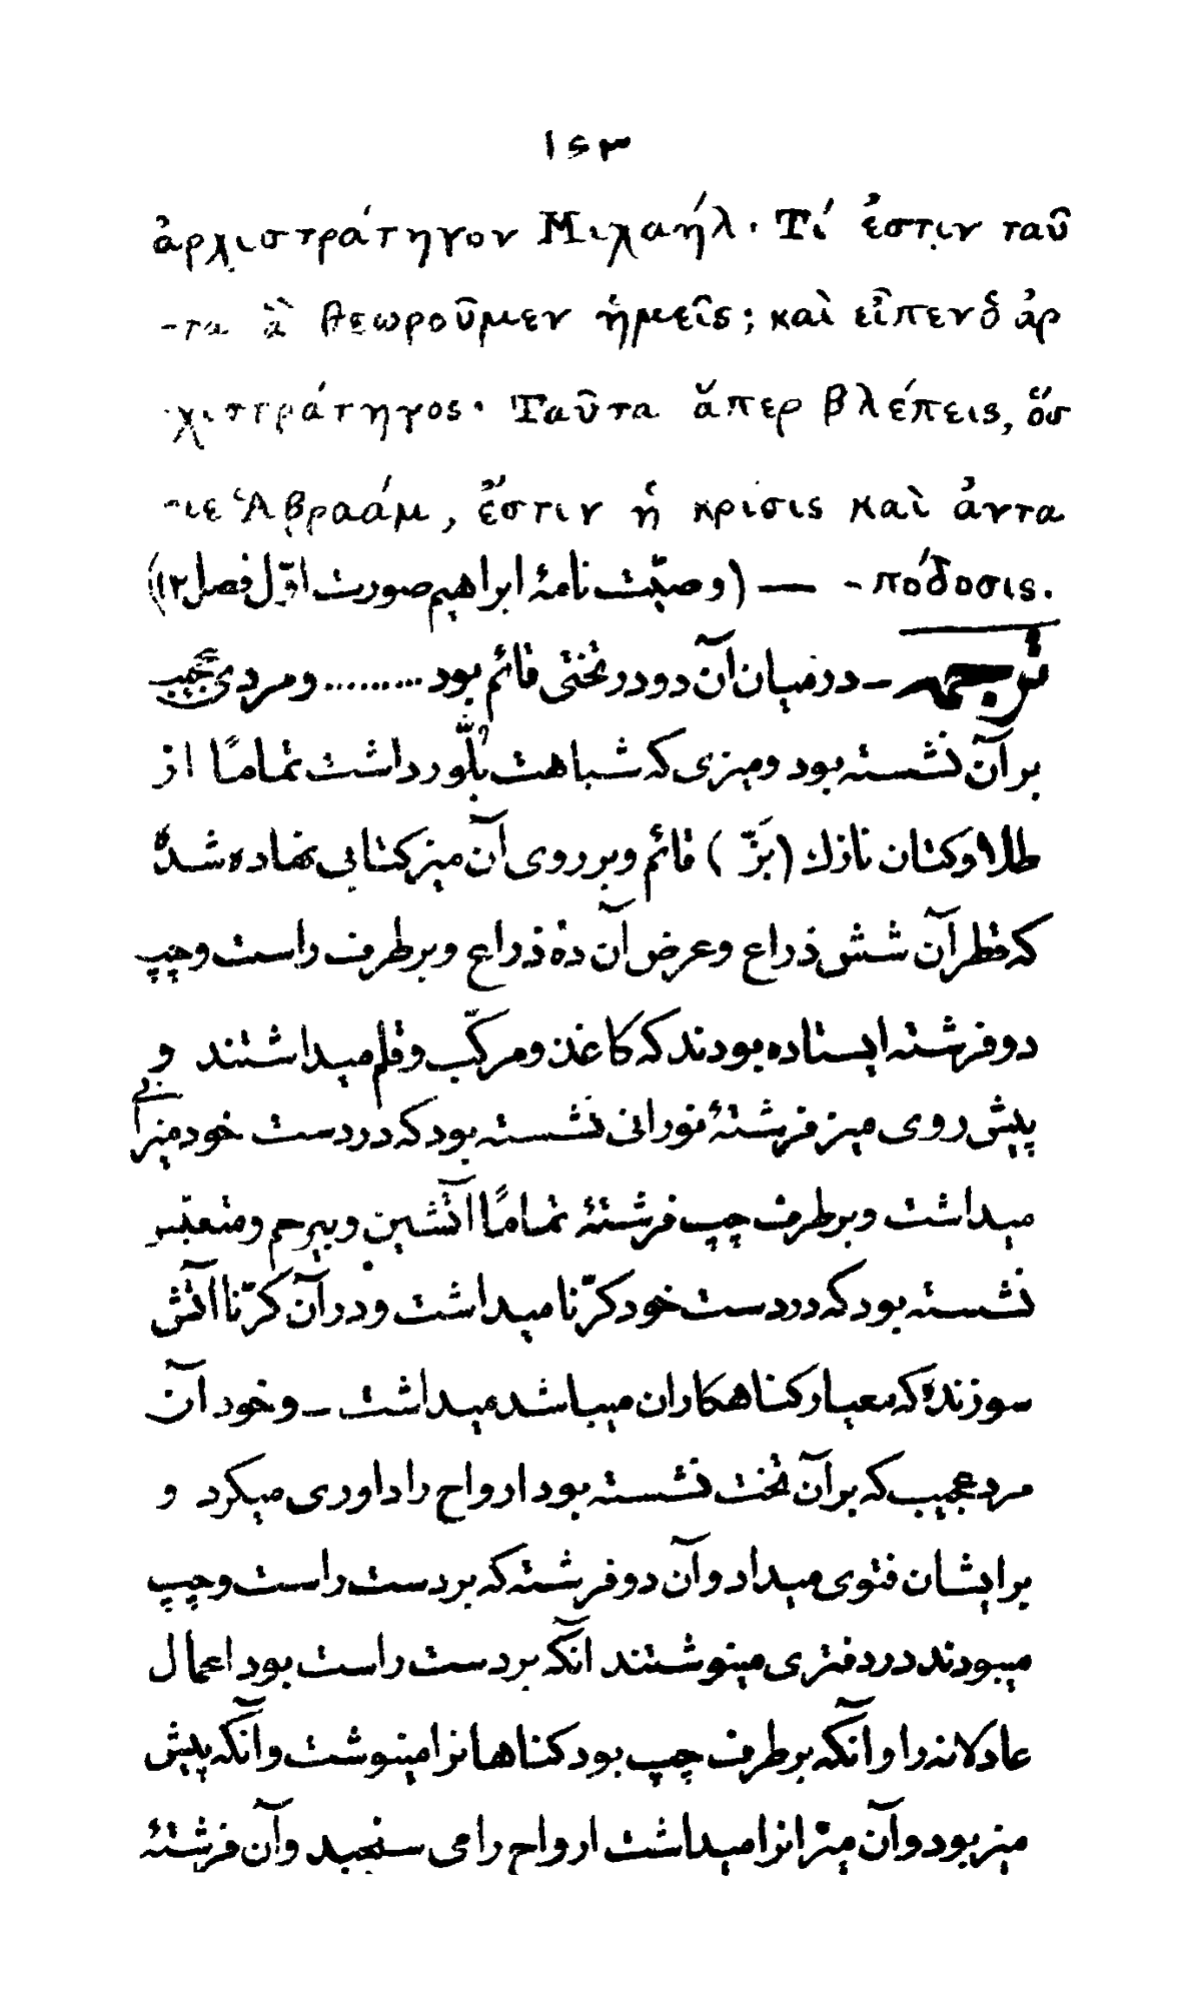 ۱۶۳
ἀρχιστράτηγον Μιχαήλ· Τί ἐστιν ταῦ
-τα ἃ θεωροῦμεν ἡμεῖς; καὶ εἶπεν ὁ ἀρ
χιστράτηγος· Ταῦτα ἅπερ βλέπεις, ὅσ
-ιε Ἀβραάμ, ἔστιν ἡ κρίσις καὶ ἀντα
-πόδοσις. — (وصیّت نامهٔ ابراهیم صورت اوّل فصل ۱۲)
ترجمه – در میان آن دو درتختی قائم بود ......... و مردی عجیب
بر آن نشسته بود و میزی که شباهت بلّور داشت تماماً از
طلا و کتان نازك (بَزّ) قائم و بر روی آن میز کتابی نهاده شدهٔ
که قطر آن شش ذراع و عرض آن ده ذراع و بر طرف راست و چپ
دو فرشته ایستاده بودند که کاغذ و مرکّب و قلم میداشتند و
پیش روی میز فرشتهٔ نورانی نشسته بود که در دست خود میزانی
میداشت و بر طرف چپ فرشتهٔ تماماً آتشین و بیرحم و متعبّس
نشسته بود که در دست خود کرّنا میداشت و در آن کرّنا آتش
سوزنده که معیار کناهکاران میباشد میداشت – و خود آن
مرد عجیب که بر آن تخت نشسته بود ارواح را داوری میکرد و
بر ایشان فتوی میداد و آن دو فرشته که بر دست راست و چپ
میبودند در دفتری مینوشتند آنکه بر دست راست بود اعمال
عادلانه را و آنکه بر طرف چپ بود کناهانرا مینوشت و آنکه پیش
میز بود و آن میزانرا میداشت ارواح را می سنجید و آن فرشتهٔ